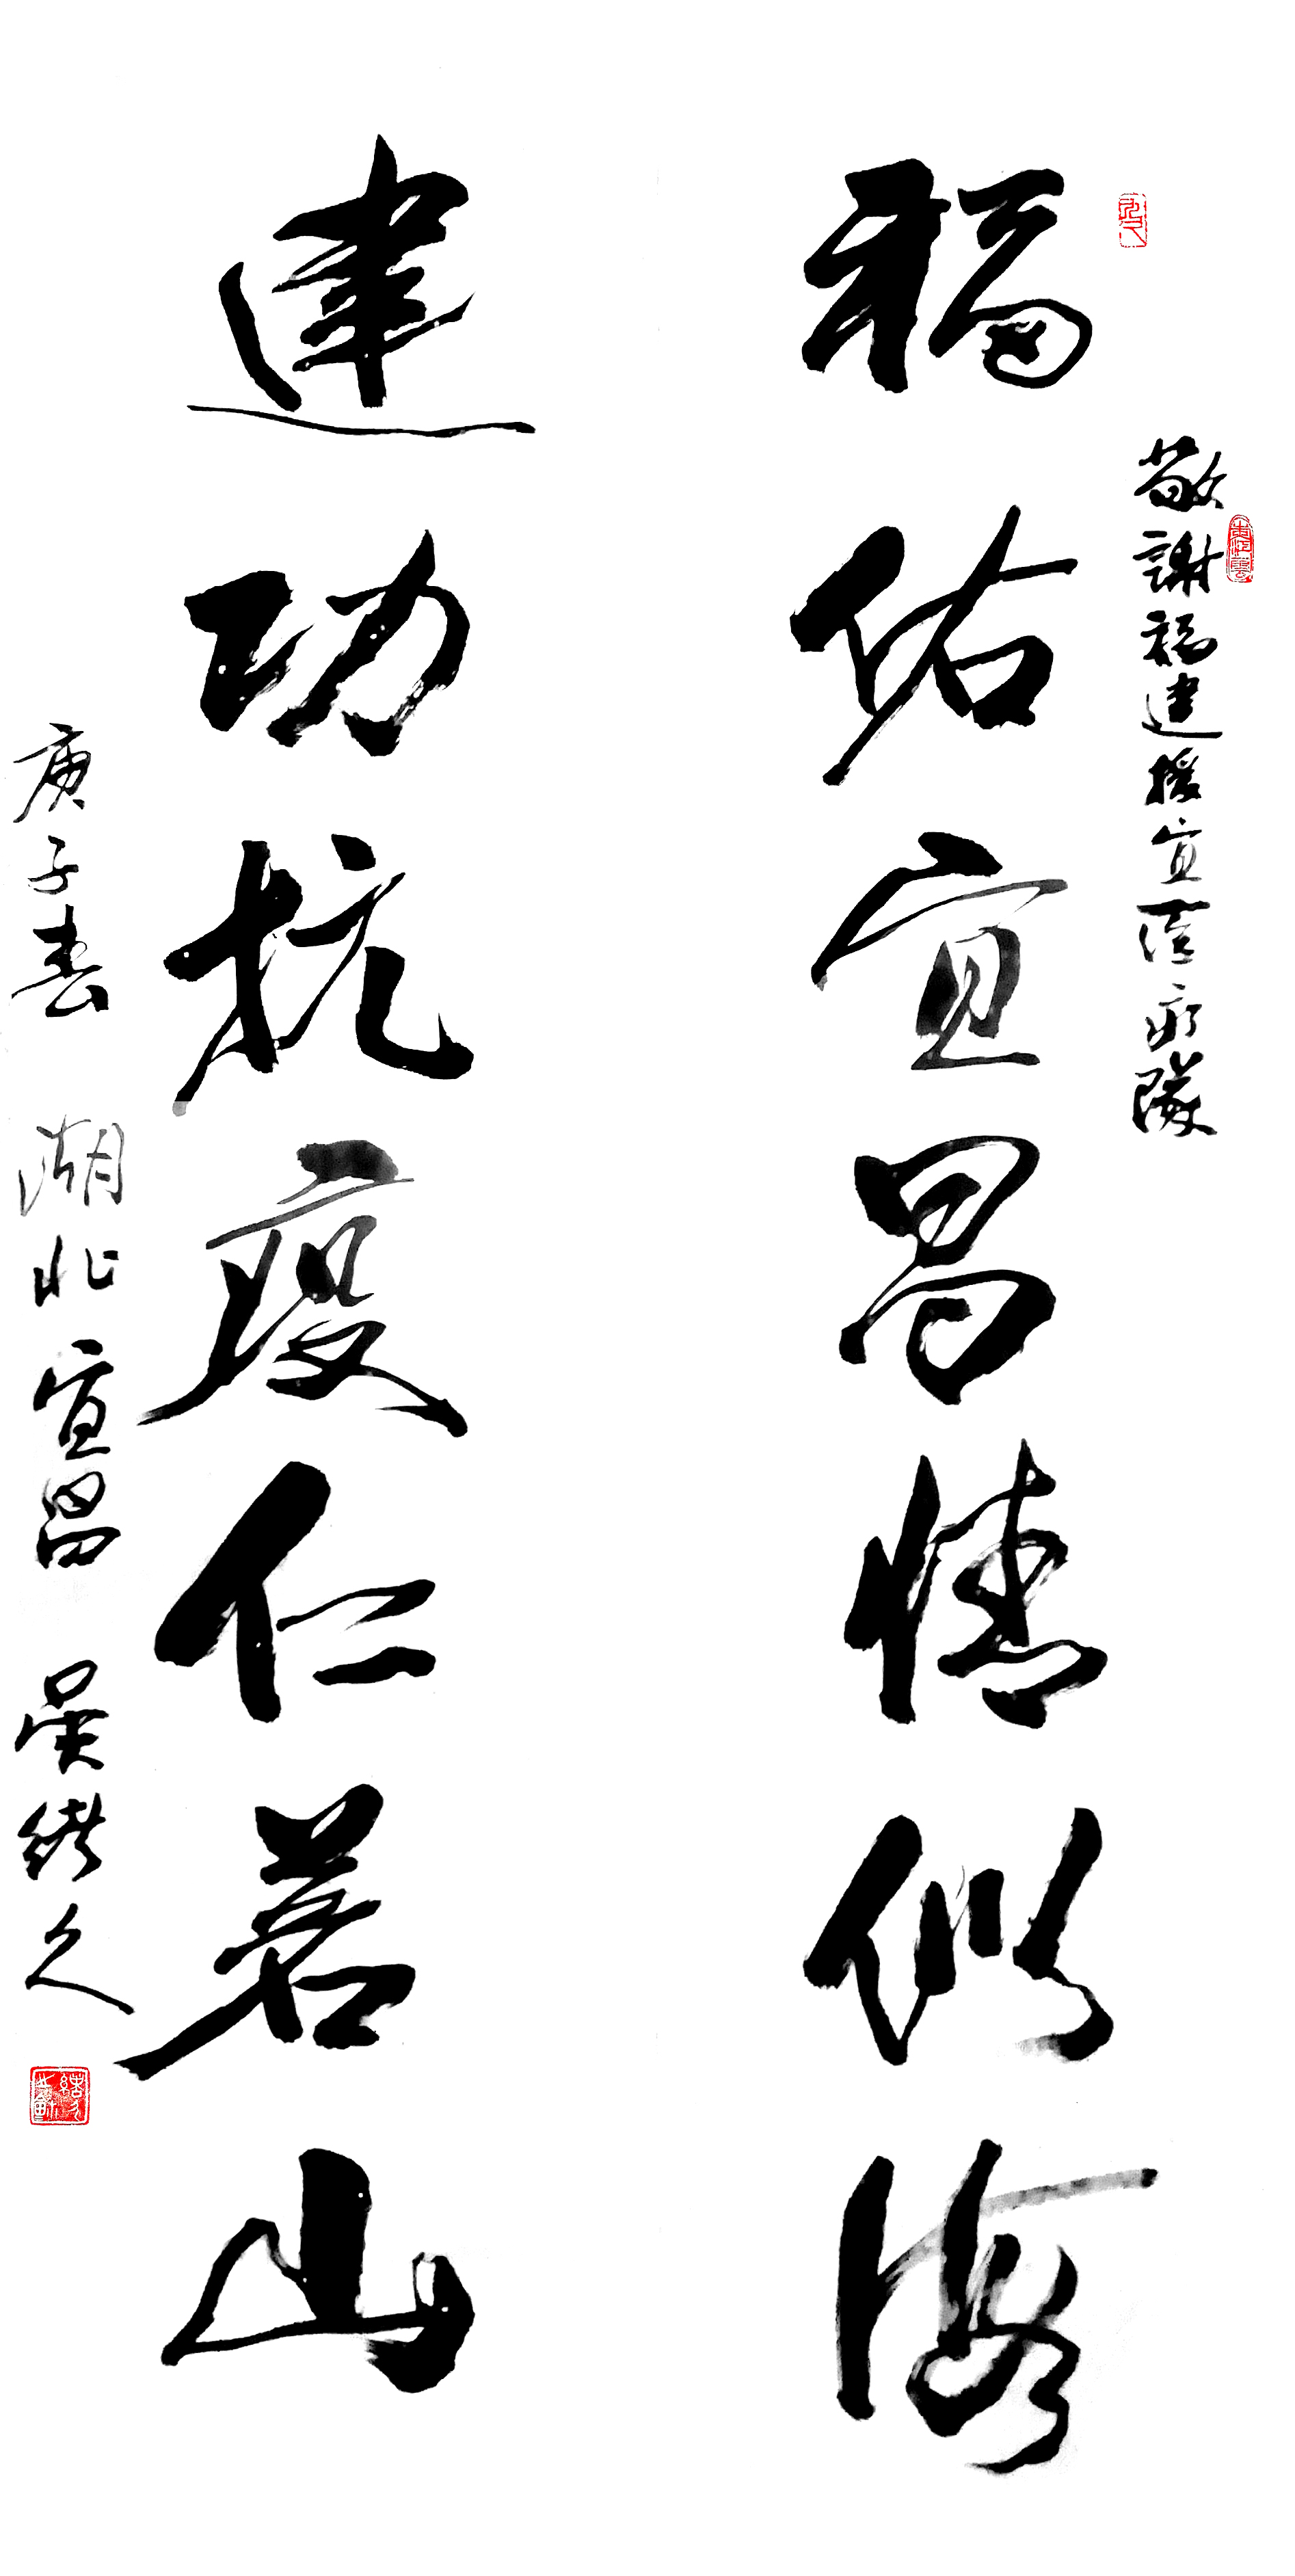 敬謝福建援宜医疗隊
福佑宜昌情似海
建功抗疫仁若山
庚子春 湖北宜昌 吴绪久